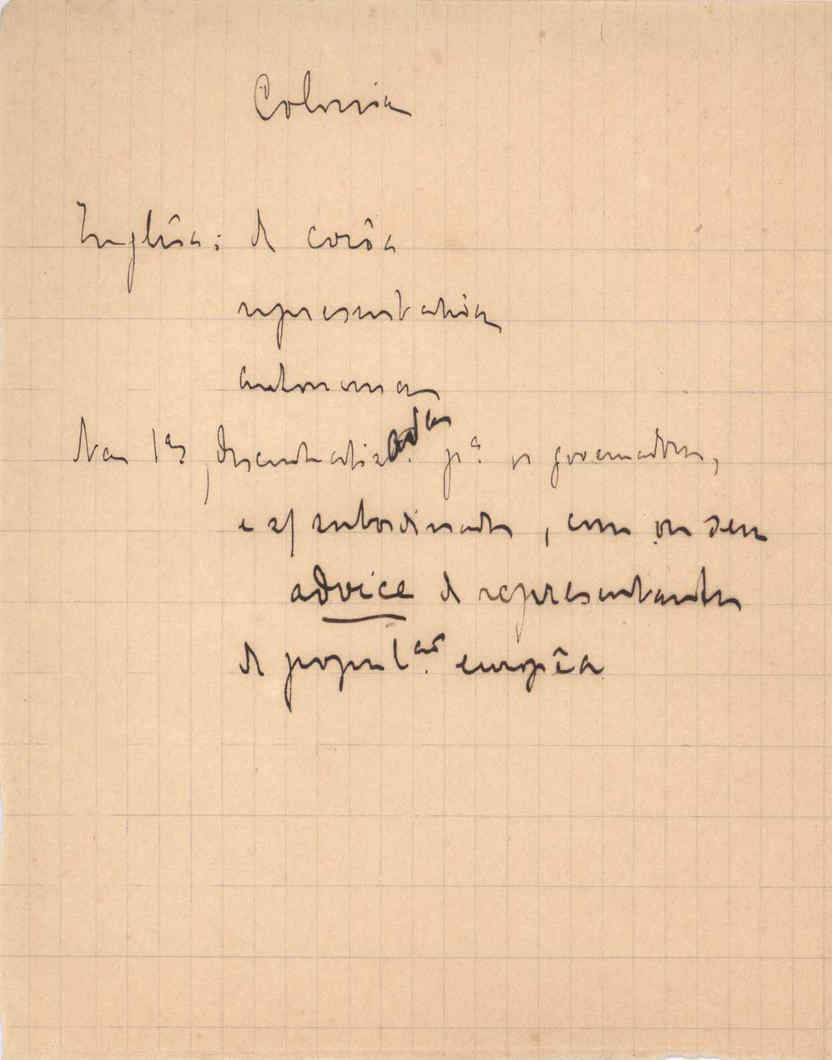 Colonia
Inglêsa: de corôa
representativa
autonoma
Nas 1as, descentralizadas pa os governadores,
e s/ subordinados, com ou sem
advice de representantes
de popul.ão europêa